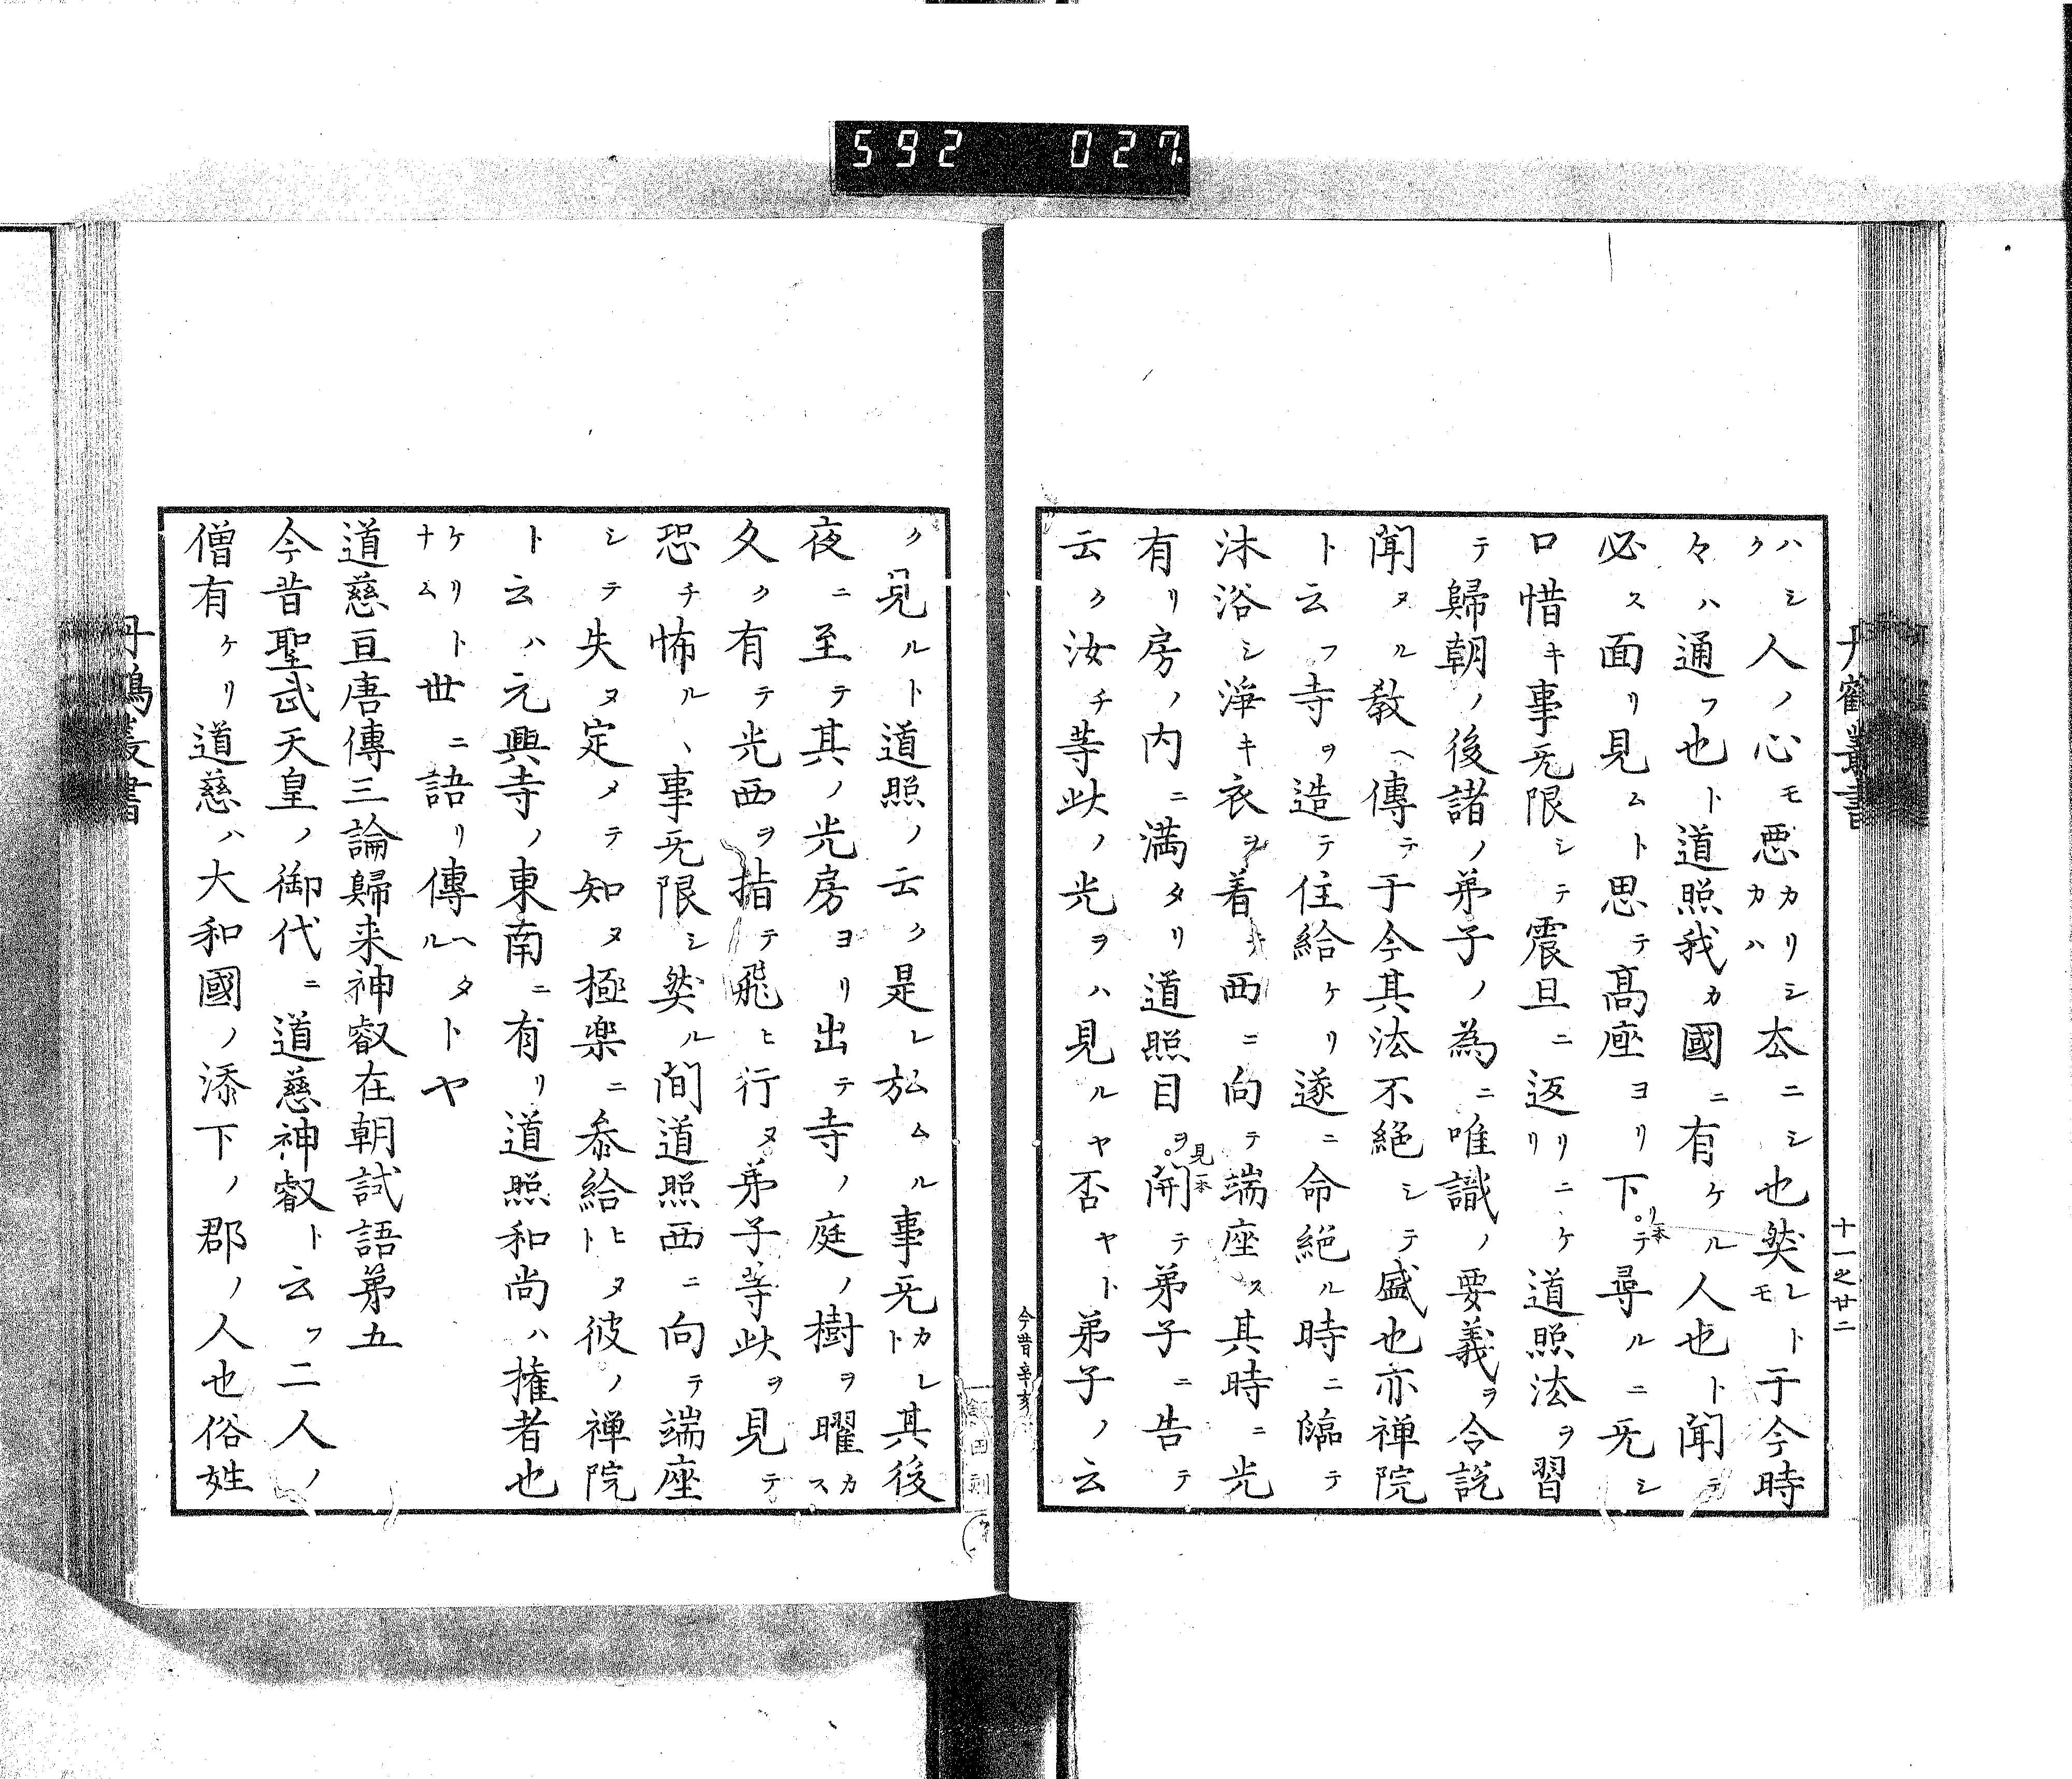 592 027
丹鶴叢書
十一之廿二
ハシク人ノ心モ悪カリカハシ厺ニシ也𤉷レトモ于今時
々ハ通フ也ト道照我カ國ニ有ケル人也ト聞テ
必ス面リ見ムト思テ髙座ヨリ下リ本テ尋ルニ旡シ
口惜キ事旡限シテ震旦ニ返リリニケリ道照法ヲ習
テ歸朝ノ後諸ノ弟子ノ為ニ唯識ノ要義ヲ令説
聞ヌル教ヘ傳テ于今其法不絶シテ盛也亦禅院
ト云フ寺ヲ造テ住給ケリ遂ニ命絶ル時ニ臨テ
沐浴シ浄キ衣ヲ着キ西ニ向テ端座ス其時ニ光
有リ房ノ内ニ満タリ道照目ヲ見本開テ弟子ニ告テ
云ク汝チ等此ノ光ヲハ見ルヤ否ヤト弟子ノ云
今昔辛亥
ク見ルト道照ノ云ク是レ弘ムル事旡カレト其後
夜ニ至テ其ノ光房ヨリ出テ寺ノ庭ノ樹ヲ曜カス
久ク有テ光西ヲ指テ飛ヒ行ヌ弟子等此ヲ見テ
恐チ怖ルヽ事旡限シ𤉷ル間道照西ニ向テ端座
シテ失ヌ定メテ知ヌ極楽ニ参給ヒヌト彼ノ禅院
ト云ハ元興寺ノ東南ニ有リ道照和尚ハ權者也
ケリトナム世ニ語リ傳ヘタルトヤ
道慈亘唐傳三論歸来神叡在朝試語第五
今昔聖武天皇ノ御代ニ道慈神叡ト云フ二人ノ
僧有ケリ道慈ハ大和國ノ添下ノ郡ノ人也俗姓
丹鶴叢書